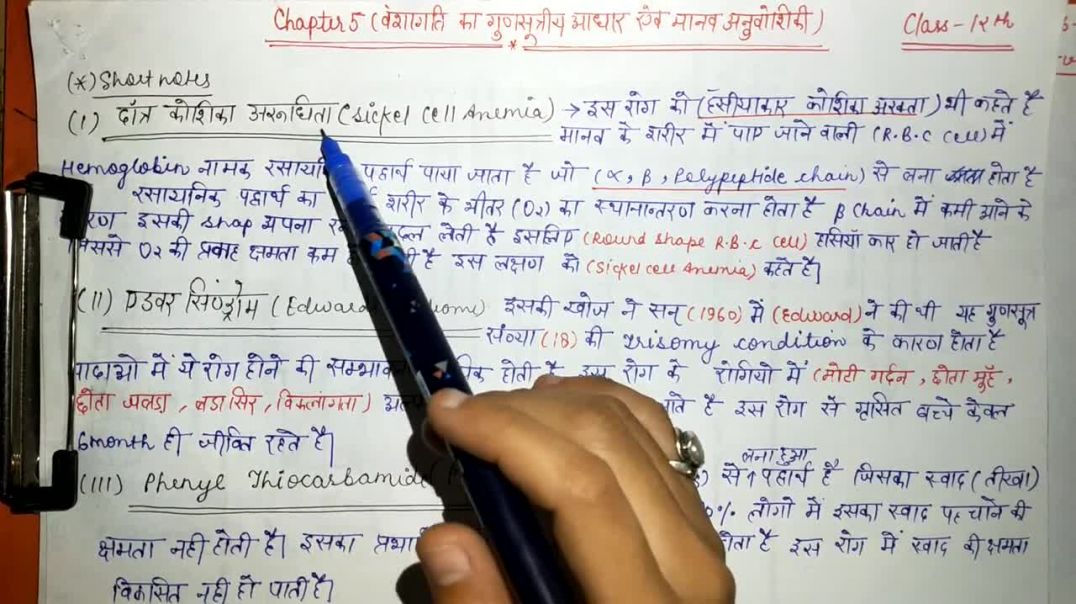 Chapter 5 (वंशागति का गुणसूत्रीय आधार एवं मानव अनुवांशिकी)
Class - 12th
(*) Short notes
(I) दॉत्र कोशिका अरक्तधिता (Sickel Cell Anemia) → इस रोग को (हँसीयाकार कोशिका अरक्तता) भी कहते है
मानव के शरीर में पाए जाने वाली (R.B.C Cell) में
Hemoglobin नामक पदार्थ पाया जाता है जो (α, β, Polypeptide chain) से बना होता है
रसायनिक पदार्थ का शरीर के भीतर (O2) का स्थानान्तरण करना होता है β Chain में कमी आने के
इसकी shap अपना लेती है इसलिए (Round shape R.B.C cell) हसियाँ कार हो जाती है
जिससे O2 की प्रवाह क्षमता कम है इस लक्षण को (Sickel cell Anemia) कहते है।
(II) एडवर सिंण्ड्रोम (Edward इसकी खोज ने सन् (1960) में (Edward) ने की थी यह गुणसूत्र
संख्या (18) की trisomy condition के कारण होता है
मादाओ में ये रोग होने की होती है इस रोग के रोगियो में (मोटी गर्दन, छोता मुँह,
छोता जबड़ा, बडा सिर, विकलांगता) है इस रोग से ग्रसित बच्चे केवल
6 month ही जीवित रहते है।
बना हुआ
(III) Phenyl Thiocarbamide से 1 पदार्थ है जिसका स्वाद (तीखा)
0% लोगो में इसका स्वाद पहचोने की
क्षमता नही होती है। इसका है इस रोग में स्वाद की क्षमता
विकसित नही हो पाती है।